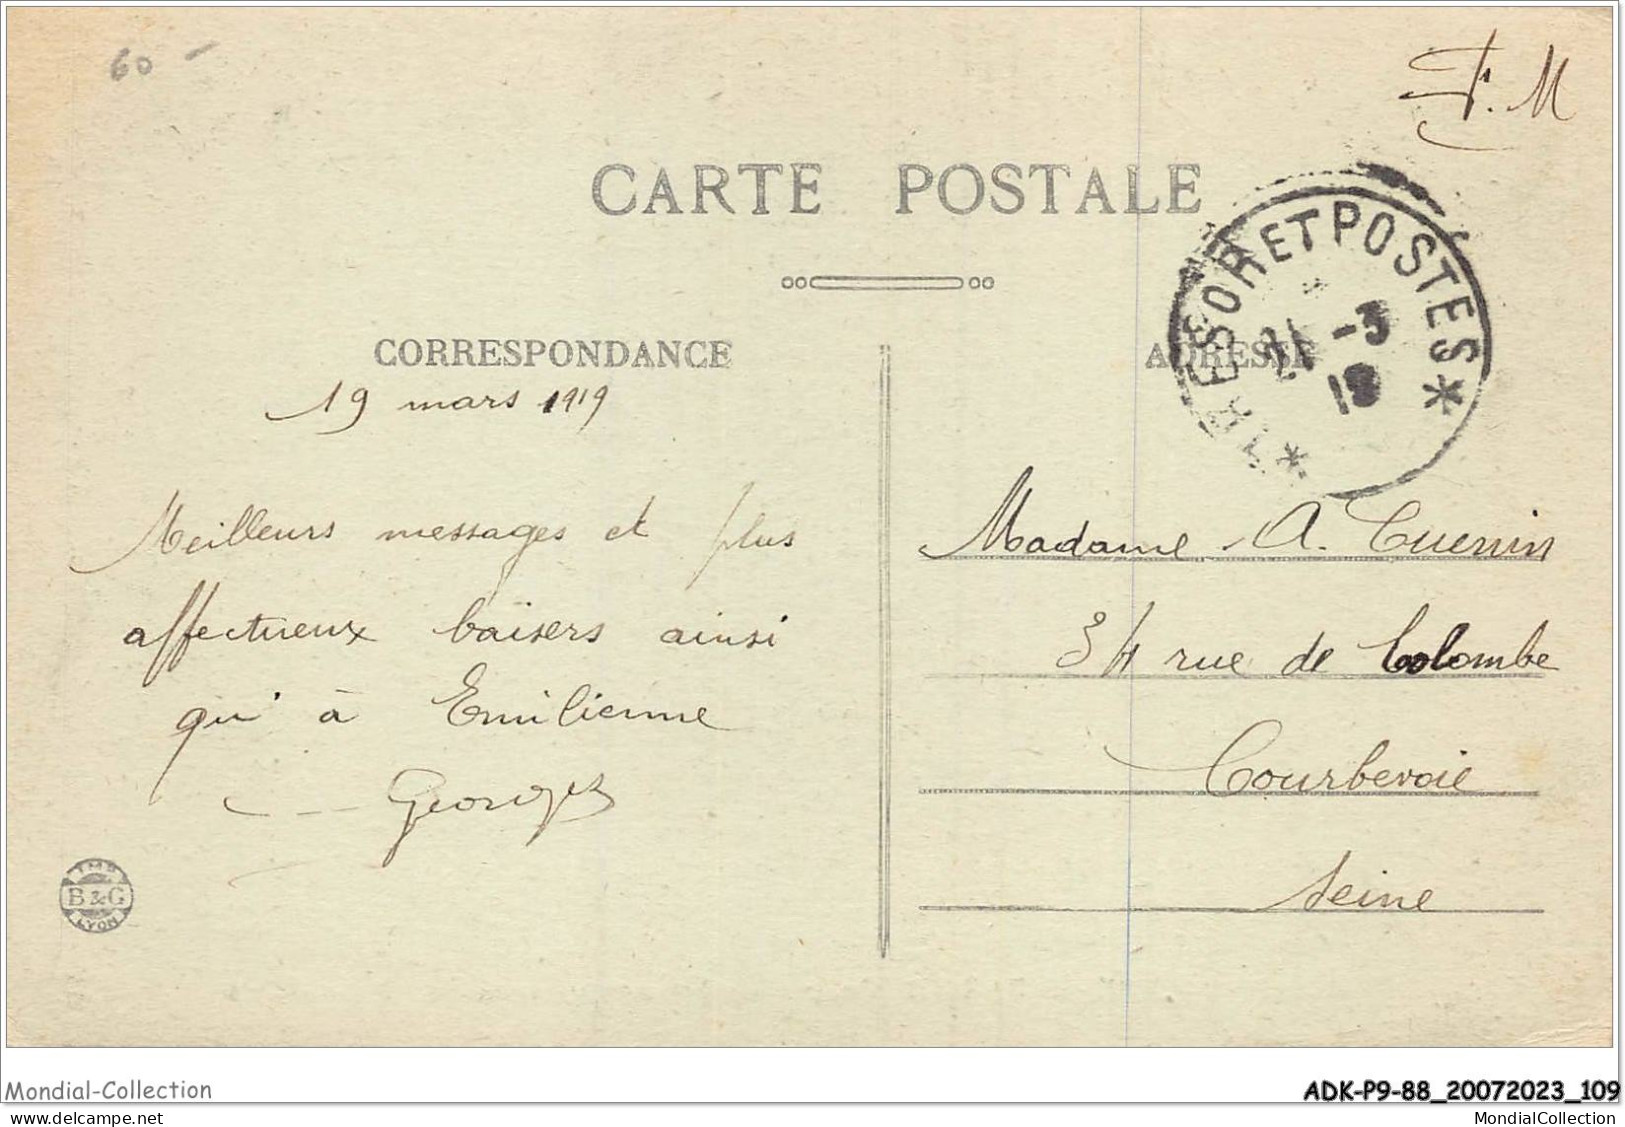 60 -
F.M
CARTE POSTALE
TRESOR ET POSTES
21 -3
19
CORRESPONDANCE
ADRESSE
19 mars 1919
Meilleurs messages et plus
affectueux baisers ainsi
qu'à Emilienne
Georges
Madame A. Cuenin
34 rue de Colombe
Courbevoie
Seine
B&G
LYON
Mondial-Collection
ADK-P9-88_20072023_109
MondialCollection